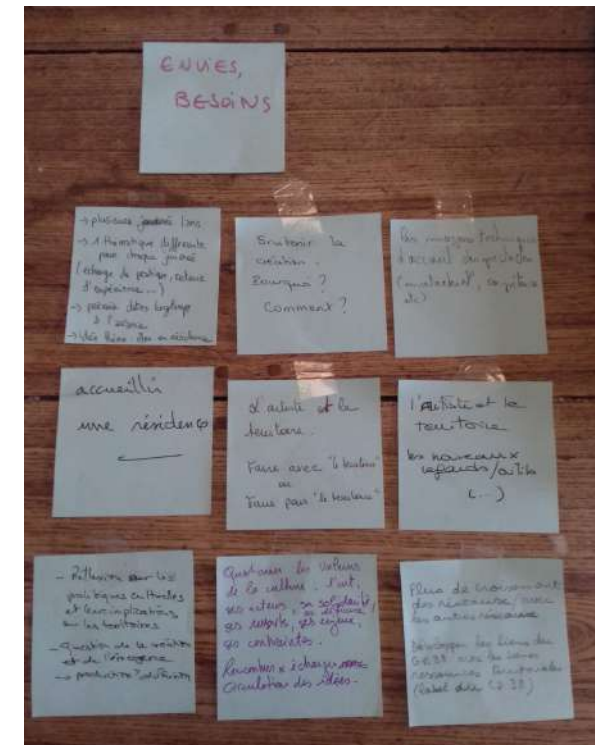 ENVIES,
BESOINS
→ plusieurs journées / ans
→ 1 thématique différente
pour chaque journée
(échange de pratique, retour
d'expérience...)
→ prévoir dates longtemps
à l'avance
→ idée thème : être en résidence
Soutenir la
création.
Pourquoi ?
Comment ?
Les moyens techniques
d'accueil des spectacles
etc)
accueillir
une résidence
L'artiste et le
territoire.
Faire avec "le territoire"
ou
Faire pour "le territoire"
l'artiste et le
territoire
les nouveaux
regards/outils
(...)
- Réflexion sur les
politiques culturelles
et leurs implications
sur les territoires
- Question de la création
et de l'émergence
→ production ? diffusion
Questionner les valeurs
de la culture, l'art,
ses acteurs, sa solidarité,
ses enjeux,
ses contraintes.
Rencontres & échanges
Circulation des idées.
Plus de croisement
des réseaux / avec
les autres réseaux
Développer les liens du
ressources